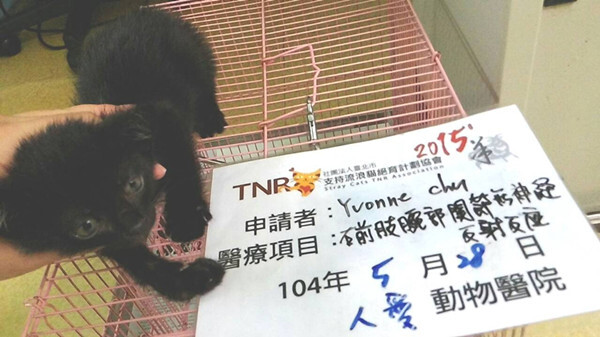 2015年
TNR 社團法人臺北市
支持流浪貓絕育計劃協會
Stray Cats TNR Association
申請者：Yvonne chu
醫療項目：右前肢腕部關節 神經
反射反應
104年 5 月 28 日
人愛 動物醫院